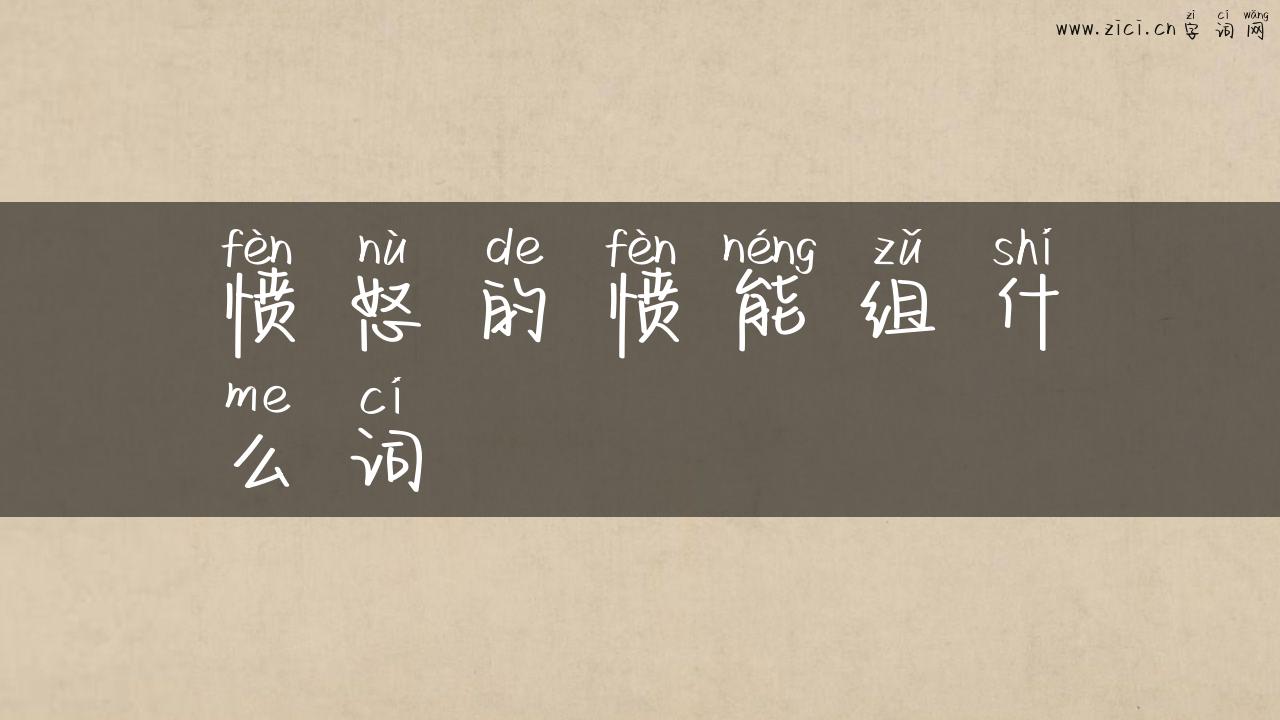 zì cí wǎng
www.zici.cn 字词网
fèn nù de fèn néng zǔ shí
愤怒的愤能组什
me cí
么词